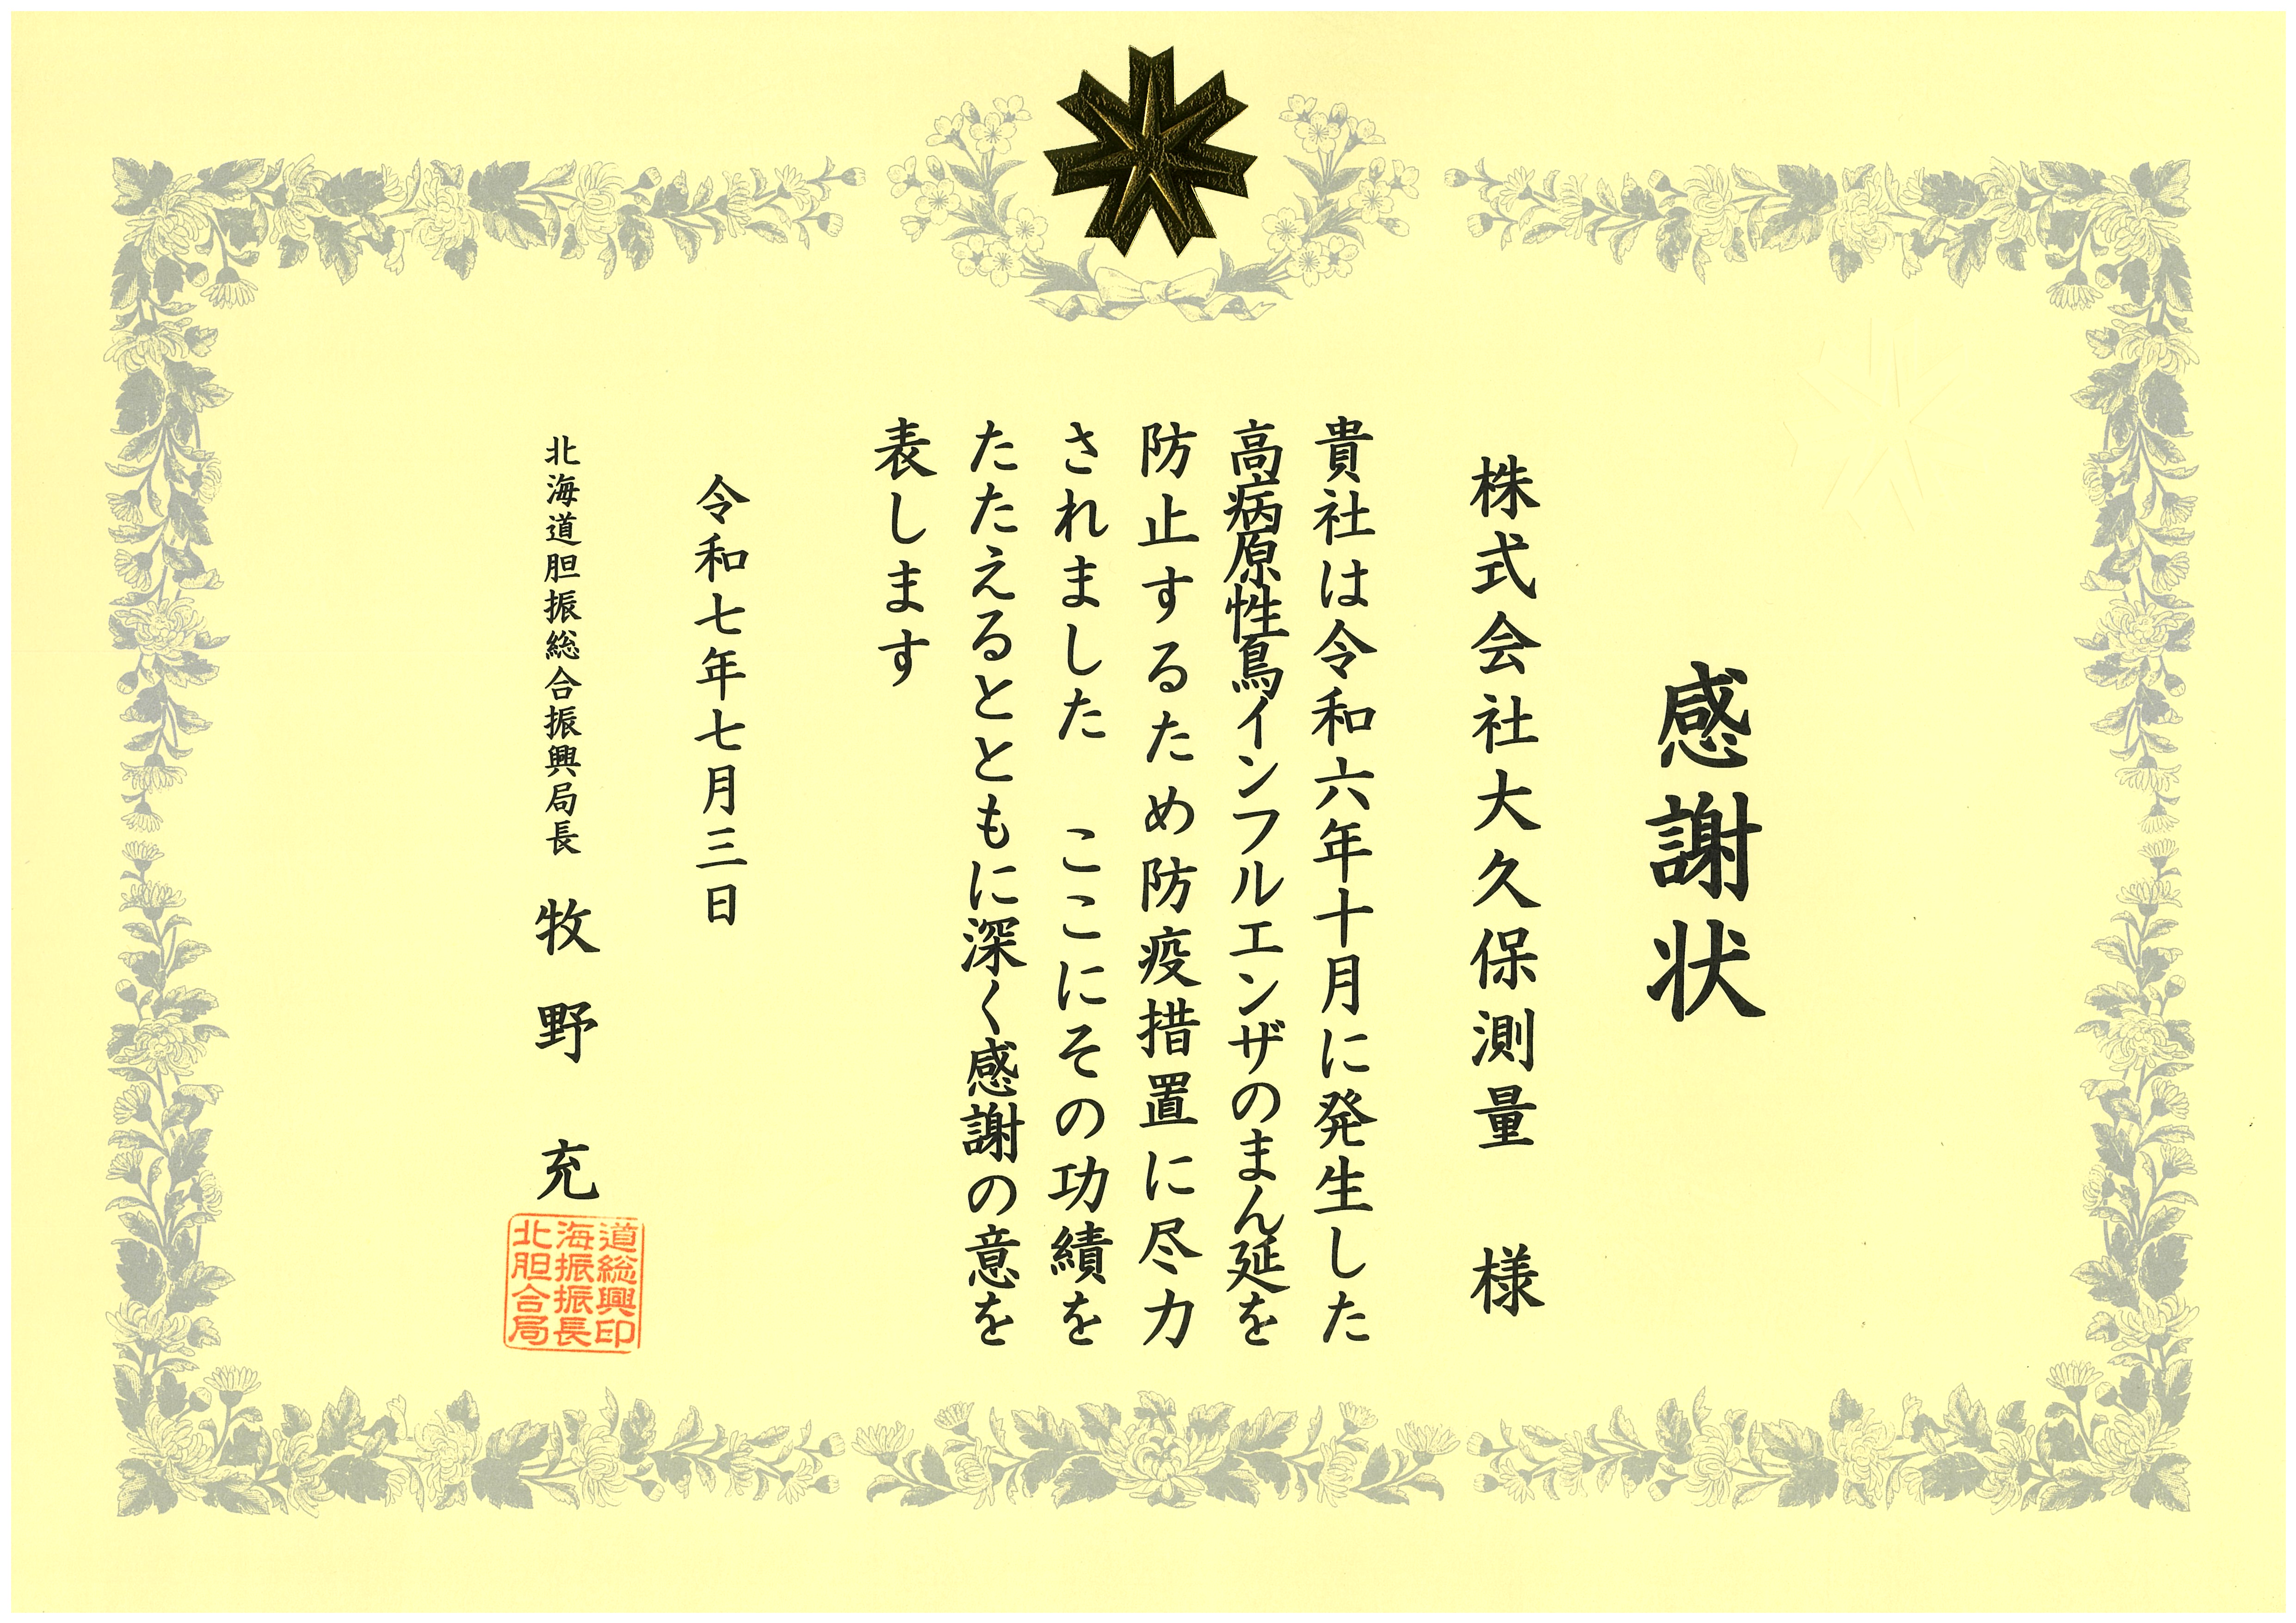 感謝状
株式会社大久保測量 様
貴社は令和六年十月に発生した
高病原性鳥インフルエンザのまん延を
防止するため防疫措置に尽力
されました ここにその功績を
たたえるとともに深く感謝の意を
表します
令和七年七月三日
北海道胆振総合振興局長 牧野 充
北海道
胆振総
合振興
局長印